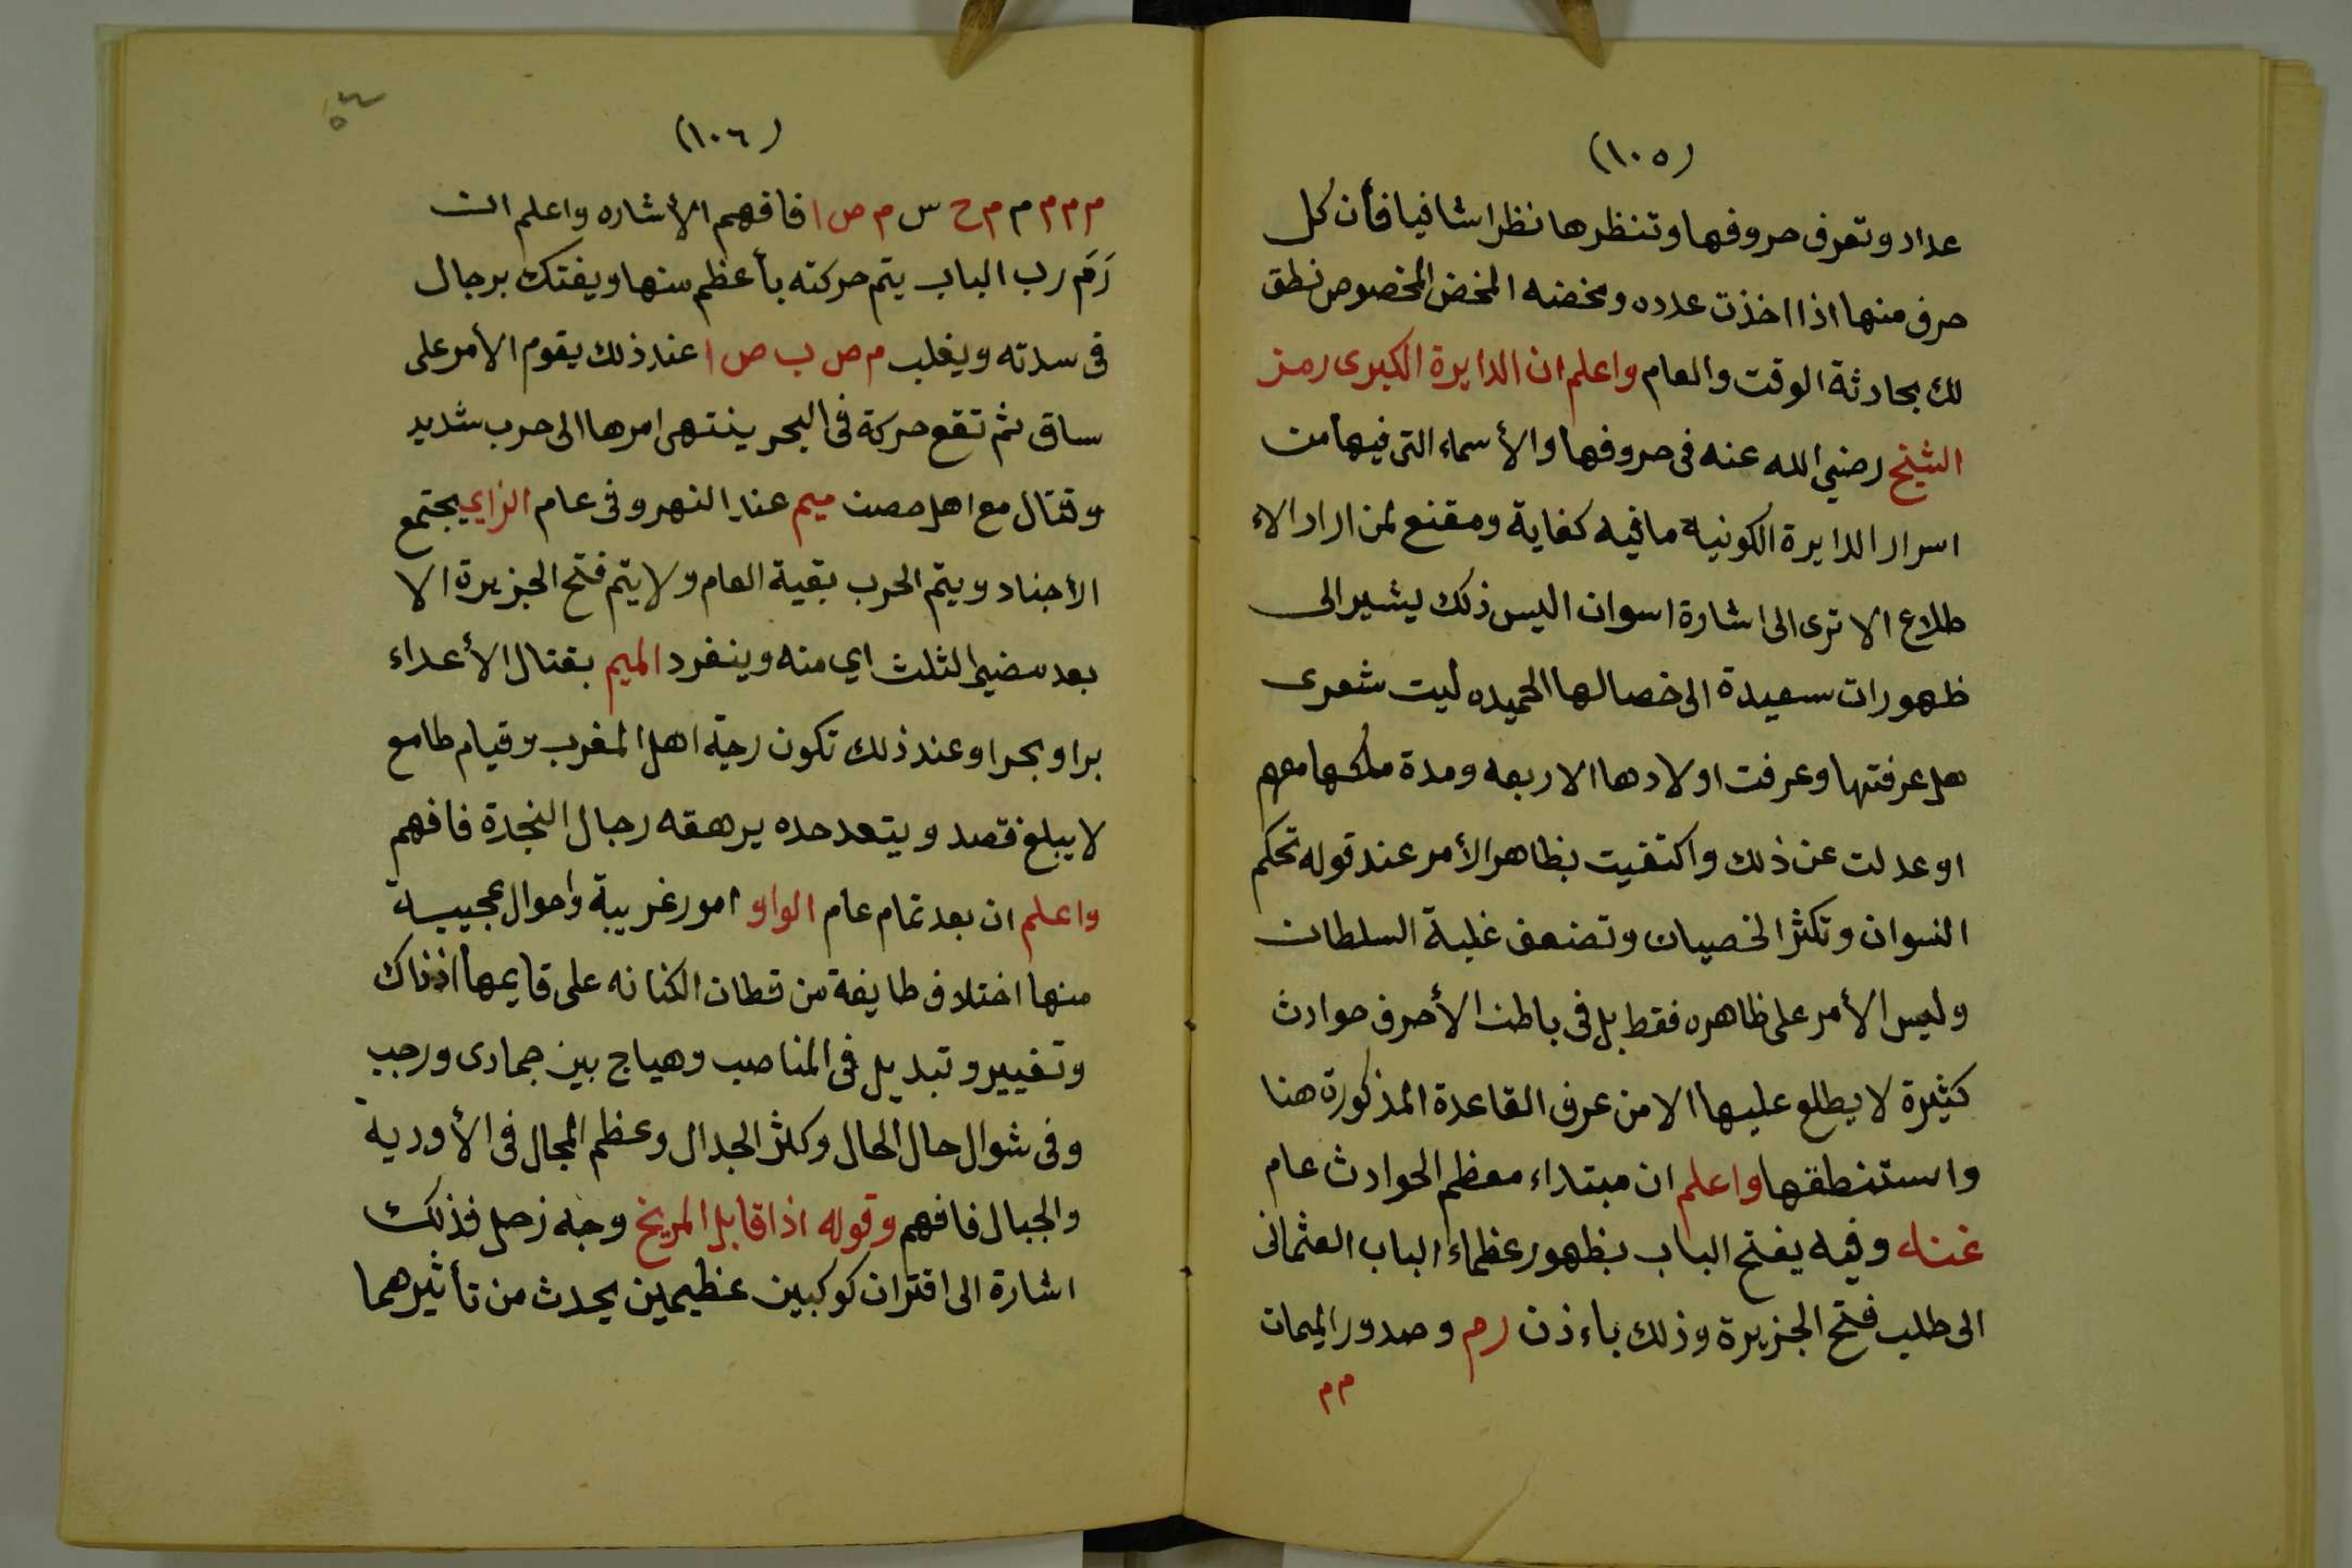 (١٠٥)
عداد وتعرف حروفها وتنظرها نظرا شافيا فأن كل
حرف منها اذا اخذت عدده ومخضه المخض المخصوص نطق
لك بحادثة الوقت والعام واعلم ان الدايرة الكبرى رمز
الشيخ رضي الله عنه فى حروفها والأسماء التى فيها من
اسرار الدايرة الكونية مافيه كفاية ومقنع لمن اراد الا
طلاع الا ترى الى اشارة اسوان اليس ذلك ليشير الى
ظهورات سعيدة الى خصالها الحميده ليت شعرى
هل عرفتها وعرفت اولادها الاربعه ومدة ملكها معهم
او عدلت عن ذلك واكتفيت بظاهر الأمر عند قوله تحكم
النسوان وتكثر الخصيان وتضعف غلبة السلطان
وليس الأمر على ظاهره فقط بل فى باطن الأحرف حوادث
كثيرة لا يطلع عليها الا من عرف القاعدة المذكورة هنا
واستنطقها واعلم ان مبتداء معظم الحوادث عام
وفيه يفتح الباب بظهور عظماء الباب العثمانى
الى طلب فتح الجزيرة وذلك باءذن رم وصدور الميمات
م م
(١٠٦)
م م م م م ح س م ص ا فافهم الأشاره واعلم ان
رَمَ رب الباب يتم حركته بأعظم منها ويفتك برجال
فى سدته ويغلب م ص ب ص ا عند ذلك يقوم الأمر على
ساق ثم تقع حركة فى البحر ينتهى امرها الى حرب شديد
وقتال مع اهل حصن ميم عند النهر وفى عام الزاي يجتمع
الأجناد ويتم الحرب بقية العام ولا يتم فتح الجزيرة الا
بعد مضي الثلث اي منه وينفرد الميم بقتال الأعداء
برا وبحرا وعند ذلك تكون رجة اهل المغرب وقيام طامع
لا يبلغ قصد ويتعد حده يرهقه رجال النجدة فافهم
واعلم ان بعد تمام عام الواو امور غريبة واحوال عجيبة
منها اختلاف طايفة من قطان الكنانه على قايمها اذذاك
وتغيير وتبديل فى المناصب وهياج بين جمادى ورجب
وفى شوال حال الحال وكثر الجدال وعظم المجال فى الأوديه
والجبال فافهم وقوله اذا قابل المريخ وجه زحل فذلك
اشارة الى اقتران كوكبين عظيمين يحدث من تأثيرهما